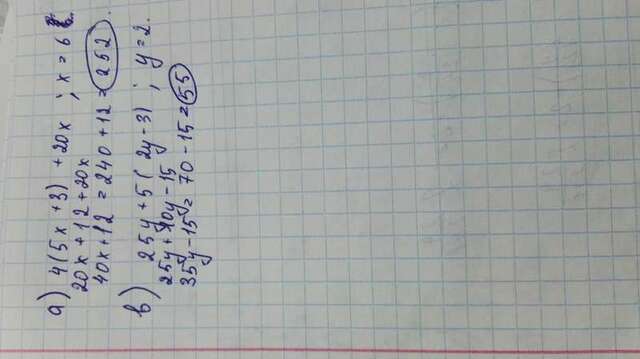 а) 4(5x+3)+20x ; x=6
20x+12+20x
40x+12=240+12=252.
в) 25y+5(2y-3) ; y=2.
25y+10y-15
35y-15=70-15=55